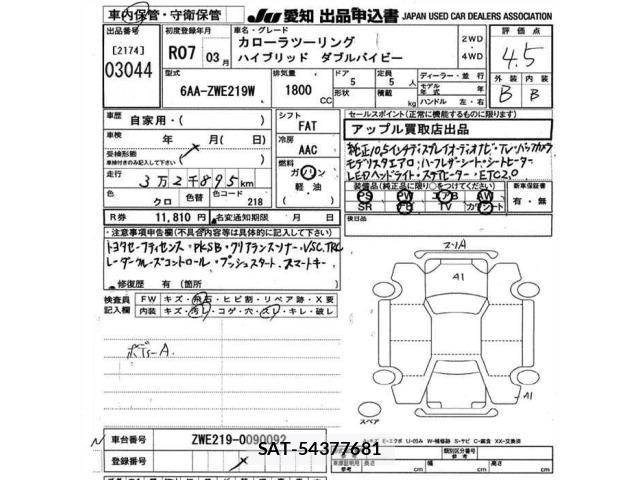 車内保管・守衛保管
JU 愛知 出品申込書 JAPAN USED CAR DEALERS ASSOCIATION
出品番号
[2174]
03044
初度登録年月
R07 03月
車名・グレード
カローラツーリング
ハイブリッド ダブルバイビー
2WD
・
4WD
評価点
4.5
型式
6AA-ZWE219W
排気量
1800 CC
ドア
5
形状
定員
5
積載
kg
ディーラー・並行
モデル年式 年
ハンドル 左・右
外装
内装
B
B
車歴
自家用・( )
車検
年 月( )日
受検形態
車検付きのみ記入して下さい
走行
3万2千895km
色
クロ
色替
色コード
218
R券
11,810 円
名変通知期限 月 日
シフト
FAT
冷房
AAC
燃料
ガソリン
・
軽油
( )
セールスポイント(正常に機能するものに限ります)
アップル買取店出品
純正10.5インチディスプレイオーディオナビ・TV・バックカメラ
モデリスタエアロ・ハーフレザーシート・シートヒーター
LEDヘッドライト・ステアヒーター・ETC2.0
装備品(純正品に限り○をつけてください)
PS PW エアB AW
SR TV カワシート
新車保証書
有・無
後日品
・注意事項申告欄(不具合等は具体的に記入して下さい)
トヨタセーフティセンス・PKSB・クリアランスソナー・VSC,TRC
レーダークルーズコントロール・プッシュスタート・スマートキー
修復歴 有( )
検査員
記入欄
FW キズ・飛石・ヒビ割・リペア跡・X要
内装 キズ・汚レ・コゲ・穴・スレ・キレ・破レ
A1
A1
スペア
A-キズ E-エクボ U-凹み W-補修跡 S-サビ C-腐食 XX-交換済
車台番号
ZWE219-0090092
登録番号
SAT-54377681
類別区分番号
参考
長さ cm 幅 cm 高さ cm